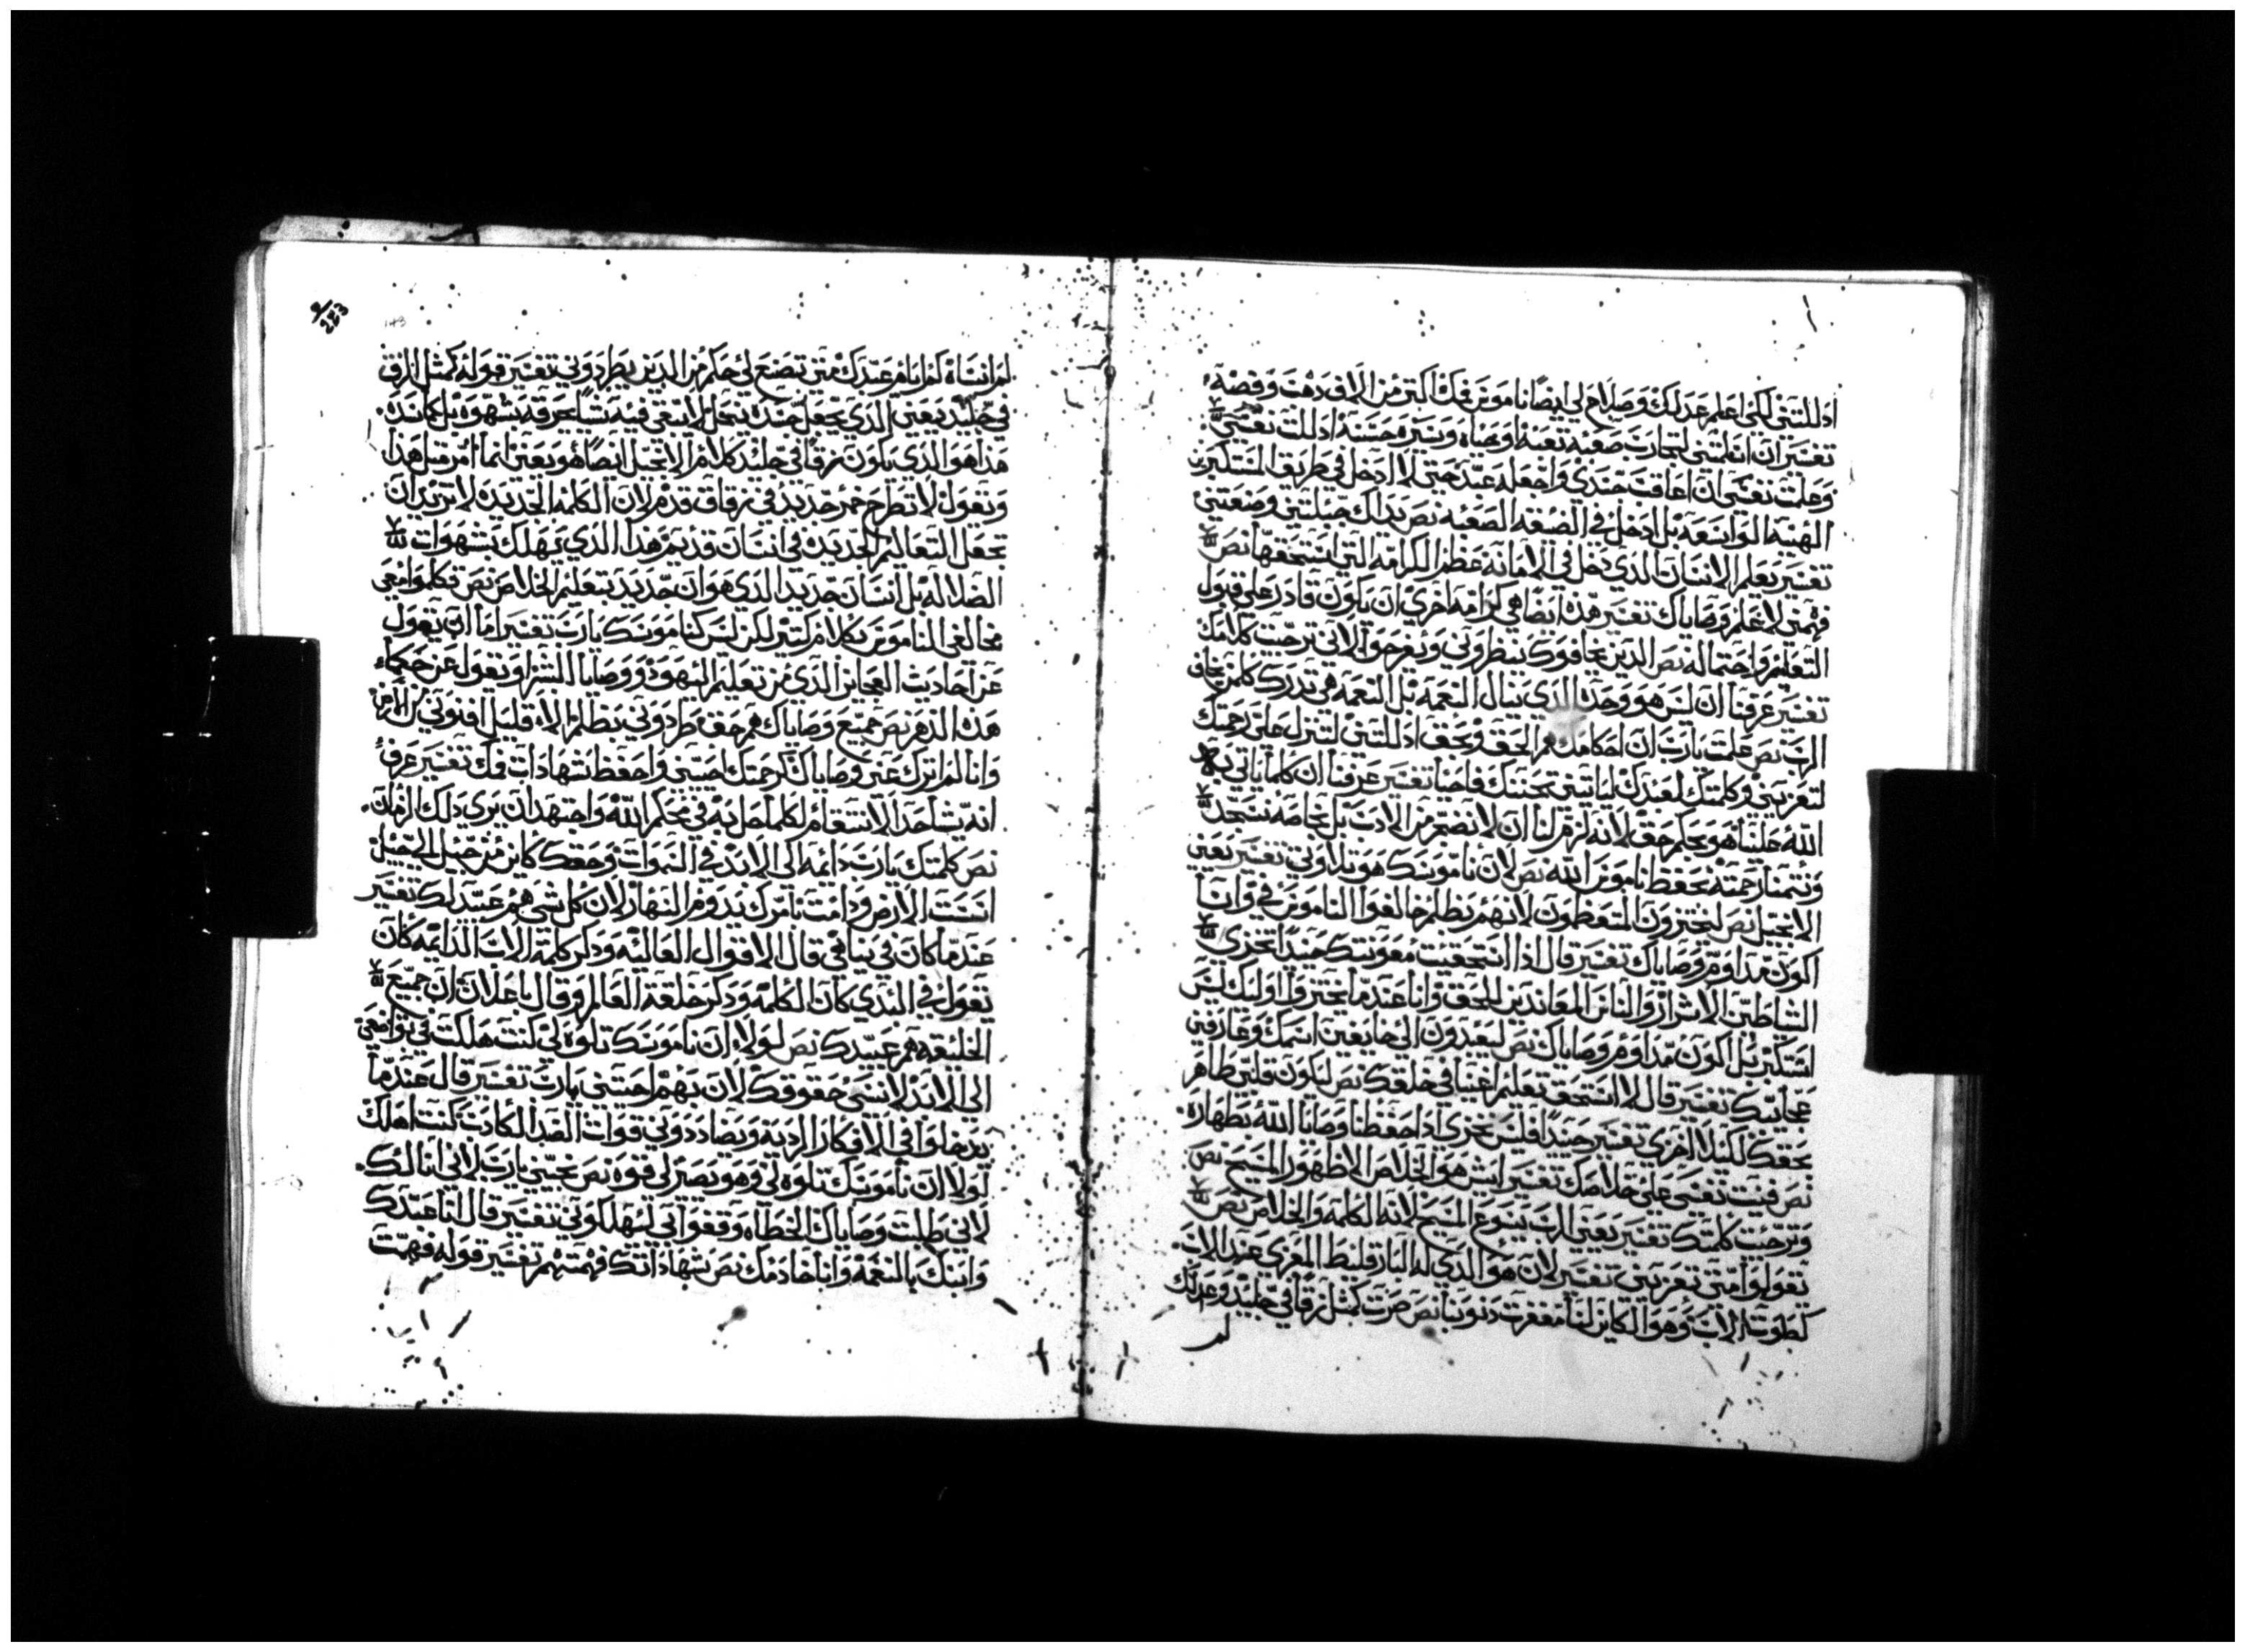 اذللتني لكي اعلم عدلك وصلاح لي ايضًا ناموس فمك اكتر من الاف دهب وفضه
تفسير ان انفلتني لتجارب صعبه تعبه او بحياه وسيره حسنه اذللت نفسي
وعلمت نفسي ان اعاقب جسدي واجعله عبد حتى لا ادخل في طريق المستكبرين
الهينه الواسعه بل ادخل في الضيقه الصعبه نص يداك جبلتني وصنعتني
تفسير يعلم الانسان الذي دخل في الامانه عظم الكرامه التي استحقها نص
فهمني لاعلم وصاياك تفسير هذه ايضا هي كرامه اخري ان يكون قادر على قبول
التعليم واحتماله نص الدين يخافوك ينظروني ويفرحوا لاني ترجيت كلامك
تفسير عرفنا ان ليس هو وحده الذي ينال النعمه بل النعمه هي تدرك كلمن يخاف
الرب نص علمت يارب ان احكامك هم الحق وبحق اذللتني لتنزل علي رحمتك
لتعزيني وكلمتك لعبدك لياتيني تحننك فاحيا تفسير عرفنا ان كلما ياتي به
الله علينا هو بحكم حق لانه لزم لنا ان لا نضجر من الادب بل بخاصه نسجد
ونتمنا رحمته بحفظ ناموس الله نص لان ناموسك هو تلاوتي تفسير يعني
الانجيل نص ليخزون المتعظمون لانهم بظلم خالفوا الناموس في وانا
اكون مداوم وصاياك تفسير قال اذا استحقيت معونتك حينيدًا تخزي
الشاطين الاشرار والناس المعاندين للحق وانا عندما يخزوا اوليك ليس
استكبر بل اكون مداوم وصاياك نص ليعيدون الي خايفين اسمك وعارفين
عجايبك تفسير قال لا استحق تعليم اغنيا في خلقك نص ليكون قلبي طاهر
بحقك لكيلا اخزي تفسير حينيدًا فليس نخزي ادا حفظنا وصايا الله بطهاره
نص فنيت نفسي على خلاصك تفسير ايش هو الخلاص الا ظهور المسيح نص
وترجيت كلمتك تفسير يعني الرب يسوع المسيح لانه الكلمه والخلاص نص
تقولوا متى تعزيني تفسير لان هو الذي له البارقليط المعزي عند الاب
لطوت الاب وهو الكاين لنا مغفرت دنوبنا نص صرت كمثل زقًا في جليد وعدلك
لم
لم انساه كم ايام عبدك متى تصنع لي حكم من الدين يطردوني تفسير قوله كمثل الزق
في جليد يعني الذي يجعل جسده ينحل لا يبقى فيه شيًا يحرقه بشهوه بل كمانه
هذا هو الذي يكون زقًا في جليد كلام الانجيل ايضًا هو يعني انما امر مثل هذا
ويقول لا تطرح خمر جديد في زقاق قدم لان الكلمه الجديده لا تريد ان
تجعل التعاليم الجديده في انسان قديم هذا الذي يهلك بشهوات
الضلاله بل انسان جديد الذي هو ان جديد بتعليم الخلاص نص تكلموا معي
مخالفي الناموس بكلام كتير لكن ليس كناموسك يارب تفسير اما ان يقول
عن احاديث العجايز الذي من تعليم اليهود ووصايا البشر او يقول عن حكماء
هذه الدهر نص جميع وصاياك هم حق طردوني بظلم الاء قليل افنوني من الارض
وانا لم اترك عني وصاياك كرحمتك احيني واحفظ شهادات فمك تفسير عرف
انه شا احدًا لا نتقام لكلما حل به في محكم الله واجتهد ان يري دلك الزمان
نص كلمتك يارب دايمه الى الابد في السموات وحقك كاين من جيل الى جيل
اسست الارض ودامت بامرك يدوم النهار لان كل شي هم عبيد لك تفسير
عندما كان في بنا في قال الاقوال العاليه ودكر كلمة الاب الدايمه كان
يقول في البدي كان الكلمه ودكر خلقة العالم وقال باعلان ان جميع
الخليقه هم عبيدك نص لولاء ان ناموسك تلاوه لي كنت هلكت في تواضعي
الى الابد لا نسي حقوقك لان بهم احيتني يارب تفسير قال عندما
يدخلوا في الافكار الرديه ويضاددوني قوات الضد الكادب كنت اهلك
لولا ان ناموسك تلاوه لي وهو يصير لي قوه نص نجيني يارب لاني انا لك
لاني طلبت وصاياك الخطاه وقفوا بي ليهلكوني تفسير قال انا عبدك
وابنك بالنعمه وانا خادمك نص شهاداتك فهمتهم تفسير قوله فهمت